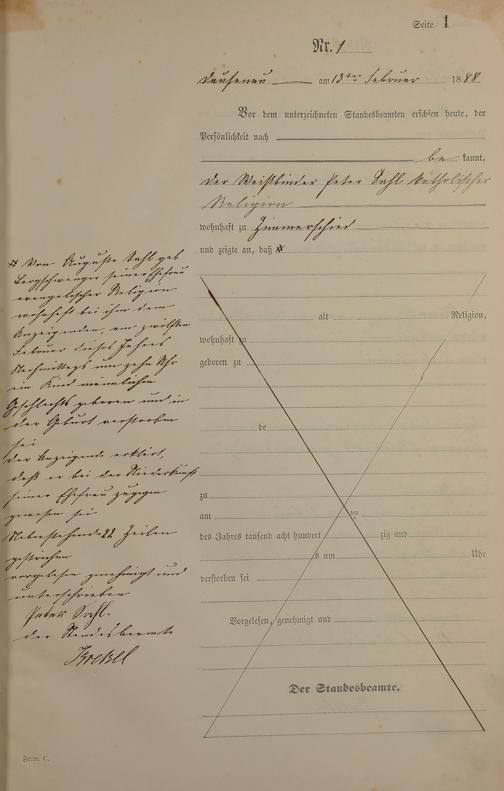 Seite 1
Nr. 1
Dausenau am 13ten Februar 1888
Vor dem unterzeichneten Standesbeamten erschien heute, der
Persönlichkeit nach
be kannt,
der Weißbinder Peter Sahl katholischer
Religion
wohnhaft zu Zimmerschied
und zeigte an, daß
Von Auguste Sahl geb
seiner Ehefrau
evangelischer Religion
wohnhaft bei ihm dem
Anzeigenden, am zwölften
Februar dieses Jahres
Nachmittags um zehn Uhr
ein Kind männlichen
Geschlechts geboren und in
der Geburt verstorben
sei
der Anzeigende erklärt,
daß er bei der Niederkunft
seiner Ehefrau zugegen
gewesen sei
Nebenstehende 22 Zeilen
gestrichen
vorgelesen genehmigt und
unterschrieben
Peter Sahl.
der Standesbeamte
alt Religion,
wohnhaft zu
geboren zu
de
zu
am ten
des Jahres tausend acht hundert zig und
s um Uhr
verstorben sei
Vorgelesen, genehmigt und
Der Standesbeamte.
Form. C.